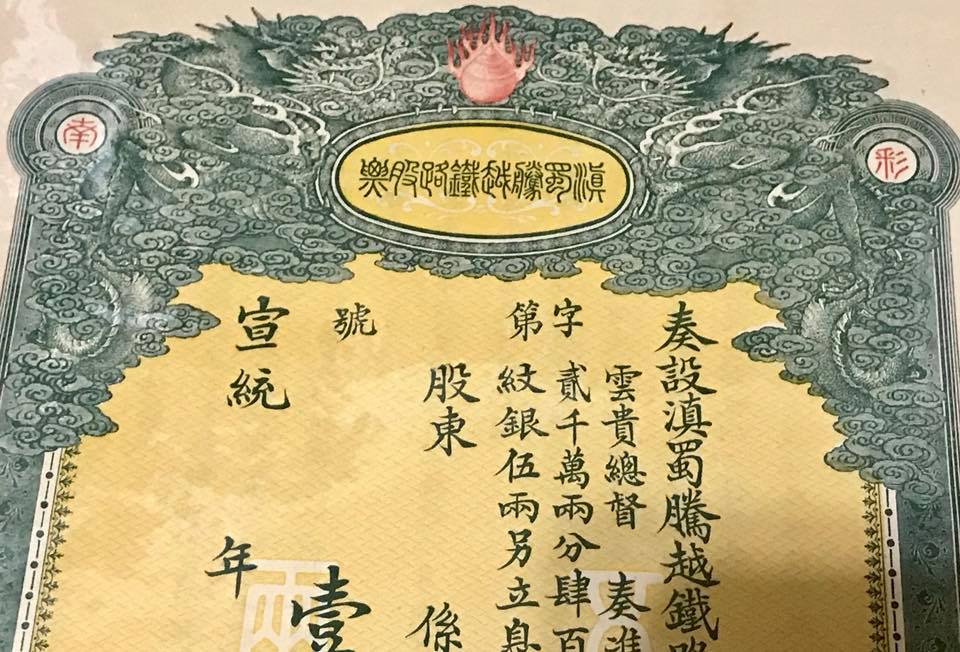 滇蜀騰越鐵路股票
彩
南
奏設滇蜀騰越鐵路
雲貴總督 奏准
字
貳千萬兩分肆百
第
紋銀伍兩另立息
股東 係
號
壹
宣統 年
兩